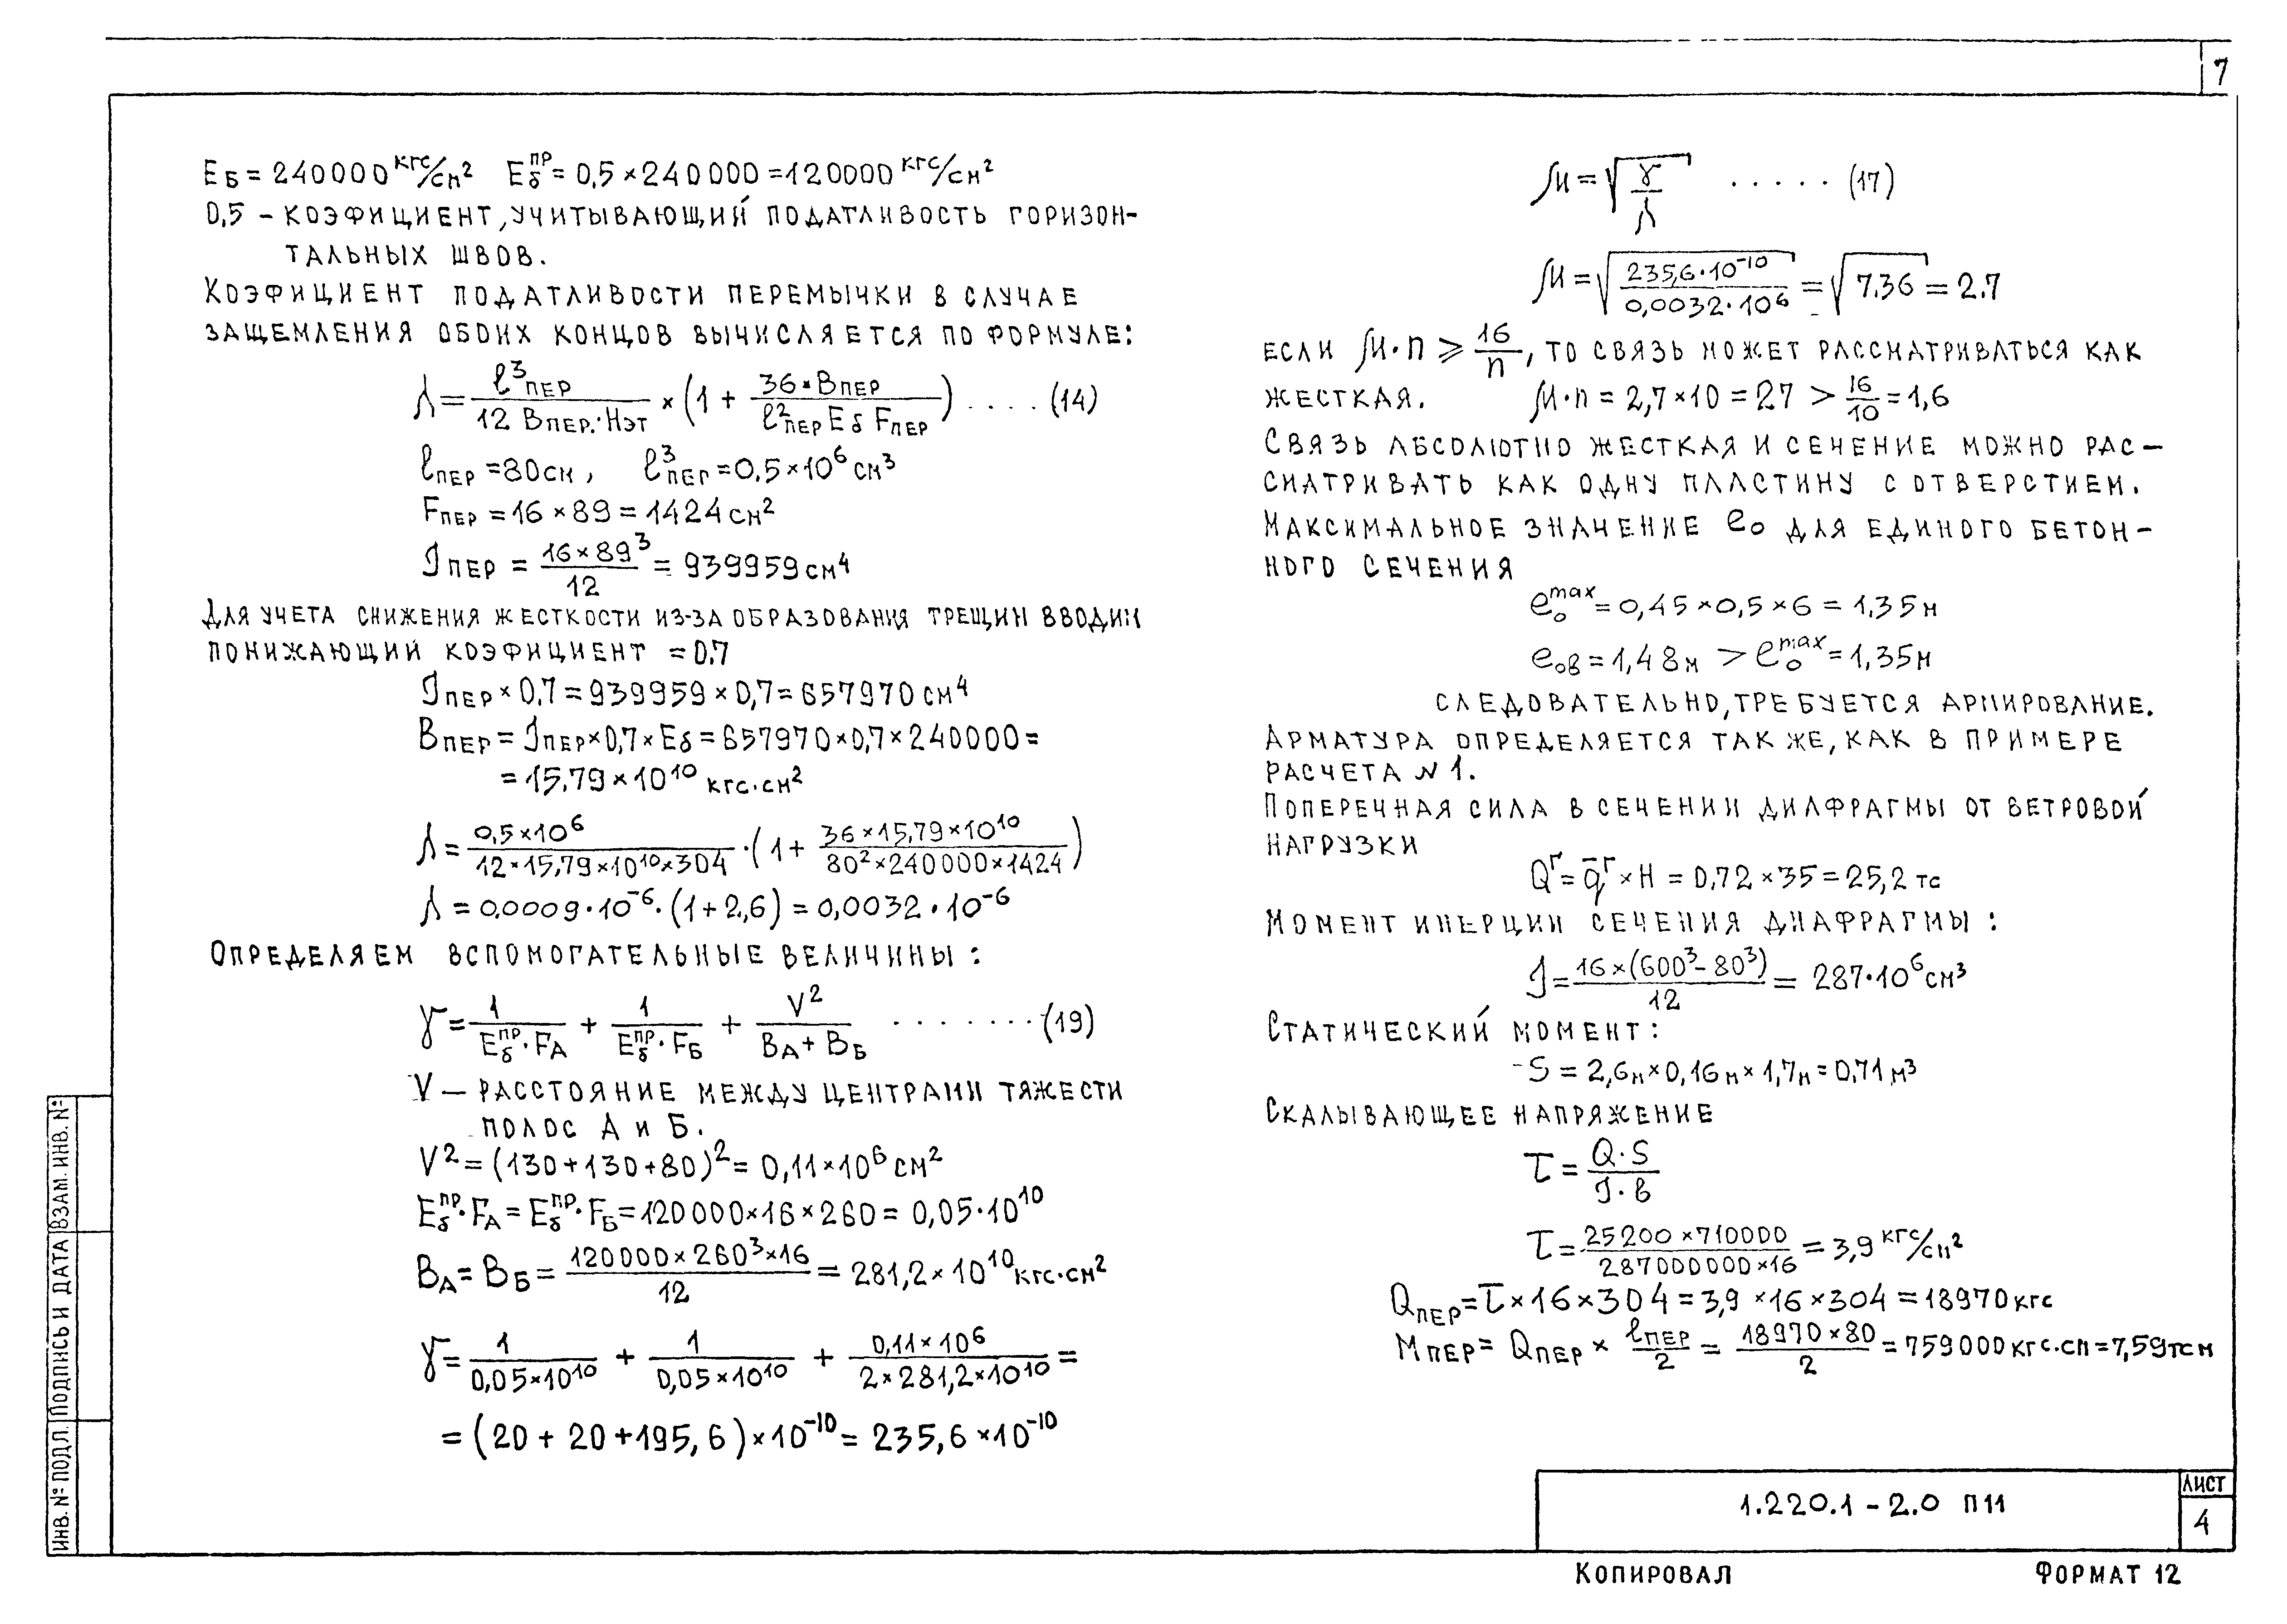 7
Eб = 240000 кгс/см² Eб^пр = 0,5 × 240000 = 120000 кгс/см²
0,5 – коэфициент, учитывающий податливость горизон-
тальных швов.
Коэфициент податливости перемычки в случае
защемления обоих концов вычисляется по формуле:
λ = ℓ³пер / (12 Bпер · Hэт) × (1 + 36 · Bпер / (ℓ²пер Eб Fпер)) .... (14)
ℓпер = 80см, ℓ³пер = 0,5 × 10⁶ см³
Fпер = 16 × 89 = 1424 см²
Jпер = 16 × 89³ / 12 = 939959 см⁴
Для учета снижения жесткости из-за образования трещин вводим
понижающий коэфициент = 0.7
Jпер × 0.7 = 939959 × 0,7 = 657970 см⁴
Bпер = Jпер × 0,7 × Eб = 657970 × 0,7 × 240000 =
= 15,79 × 10¹⁰ кгс·см²
λ = 0,5 × 10⁶ / (12 × 15,79 × 10¹⁰ × 304) · (1 + 36 × 15,79 × 10¹⁰ / (80² × 240000 × 1424))
λ = 0,0009 · 10⁻⁶ · (1 + 2,6) = 0,0032 · 10⁻⁶
Определяем вспомогательные величины:
γ = 1 / (Eб^пр · FА) + 1 / (Eб^пр · FБ) + V² / (BА + BБ) ........ (19)
V – расстояние между центрами тяжести
полос А и Б.
V² = (130 + 130 + 80)² = 0,11 × 10⁶ см²
Eб^пр · FА = Eб^пр · FБ = 120000 × 16 × 260 = 0,05 · 10¹⁰
BА = BБ = 120000 × 260³ × 16 / 12 = 281,2 × 10¹⁰ кгс·см²
γ = 1 / (0,05 × 10¹⁰) + 1 / (0,05 × 10¹⁰) + 0,11 × 10⁶ / (2 × 281,2 × 10¹⁰) =
= (20 + 20 + 195,6) × 10⁻¹⁰ = 235,6 × 10⁻¹⁰
μ = √(γ / λ) ..... (17)
μ = √(235,6 · 10⁻¹⁰ / (0,0032 · 10⁶)) = √7.36 = 2.7
если μ · n ≥ 16/n, то связь может рассматриваться как
жесткая. μ · n = 2,7 × 10 = 27 > 16/10 = 1,6
Связь абсолютно жесткая и сечение можно рас-
сматривать как одну пластину с отверстием.
Максимальное значение e₀ для единого бетон-
ного сечения
e₀^max = 0,45 × 0,5 × 6 = 1,35 м
e₀в = 1,48 м > e₀^max = 1,35 м
следовательно, требуется армирование.
Арматура определяется так же, как в примере
расчета N 1.
Поперечная сила в сечении диафрагмы от ветровой
нагрузки
Qᴦ = q̄ᴦ × H = 0,72 × 35 = 25,2 тс
Момент инерции сечения диафрагмы:
J = 16 × (600³ – 80³) / 12 = 287 · 10⁶ см³
Статический момент:
S = 2,6м × 0,16м × 1,7м = 0,71 м³
Скалывающее напряжение
τ = Q · S / (J · в)
τ = 25200 × 710000 / (287000000 × 16) = 3,9 кгс/см²
Qпер = τ × 16 × 304 = 3,9 × 16 × 304 = 18970 кгс
Mпер = Qпер × ℓпер / 2 = 18970 × 80 / 2 = 759000 кгс.см = 7,59 тсм
Инв. № подл. Подпись и дата Взам. инв. №
1.220.1 – 2.0 П11
Лист
4
Копировал Формат 12